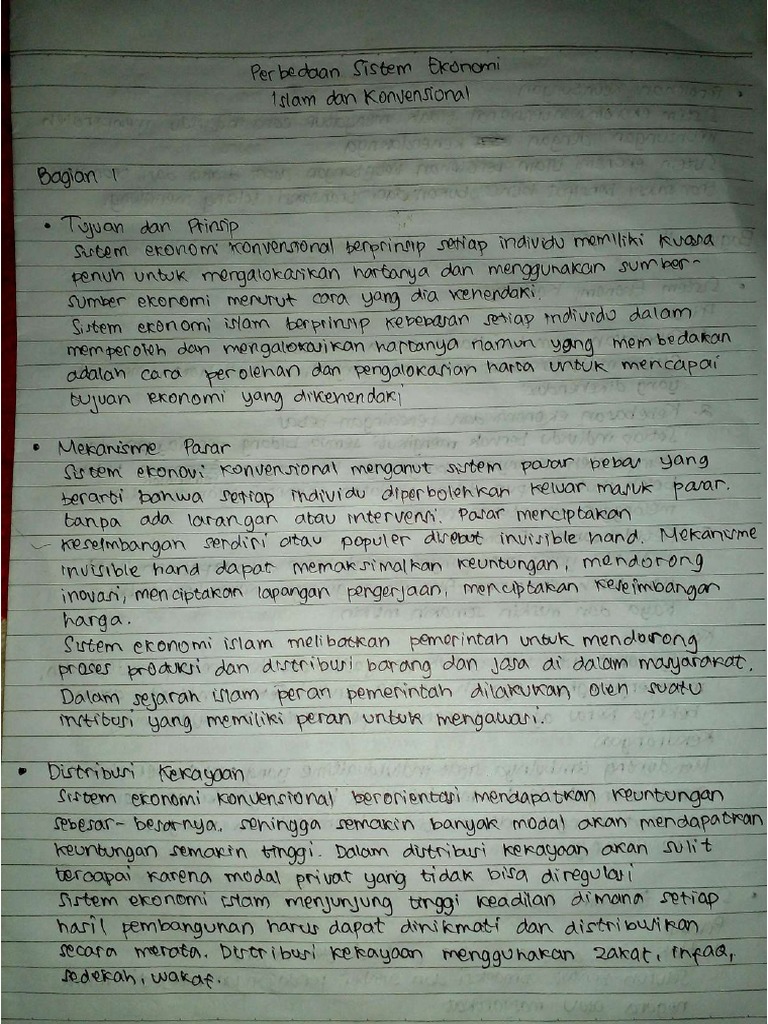 Perbedaan Sistem Ekonomi
Islam dan Konvensional
Bagian 1
• Tujuan dan Prinsip
Sistem ekonomi konvensional berprinsip setiap individu memiliki kuasa
penuh untuk mengalokasikan hartanya dan menggunakan sumber-
sumber ekonomi menurut cara yang dia kehendaki.
Sistem ekonomi islam berprinsip kebebasan setiap individu dalam
memperoleh dan mengalokasikan hartanya namun yang membedakan
adalah cara perolehan dan pengalokasian harta untuk mencapai
tujuan ekonomi yang dikehendaki
• Mekanisme Pasar
Sistem ekonovi konvensional menganut sistem pasar bebas yang
berarti bahwa setiap individu diperbolehkan keluar masuk pasar.
tanpa ada larangan atau intervensi. Pasar menciptakan
keseimbangan serdiri atau populer disebut invisible hand. Mekanisme
invisible hand dapat memaksimalkan keuntungan, mendorong
inovasi, menciptakan lapangan pengerjaan, menciptakan keseimbangan
harga.
Sistem ekonomi islam melibatkan pemerintah untuk mendorong
proses produksi dan distribusi barang dan jasa di dalam masyarakat.
Dalam sejarah islam peran pemerintah dilakukan oleh suatu
institusi yang memiliki peran untuk mengawasi.
• Distribusi Kekayaan
Sistem ekonomi konvensional berorientasi mendapatkan keuntungan
sebesar-besarnya. sehingga semakin banyak modal akan mendapatkan
keuntungan semakin tinggi. Dalam distribusi kekayaan akan sulit
tercapai karena modal privat yang tidak bisa diregulasi
Sistem ekonomi islam menjunjung tinggi keadilan dimana setiap
hasil pembangunan harus dapat dinikmati dan distribusikan
secara merata. Distribusi kekayaan menggunakan zakat, infaq,
sedekah, wakaf.